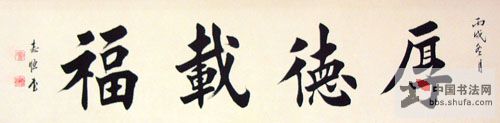 丙戌冬月
厚德載福
中国书法网
bbs.shufa.com